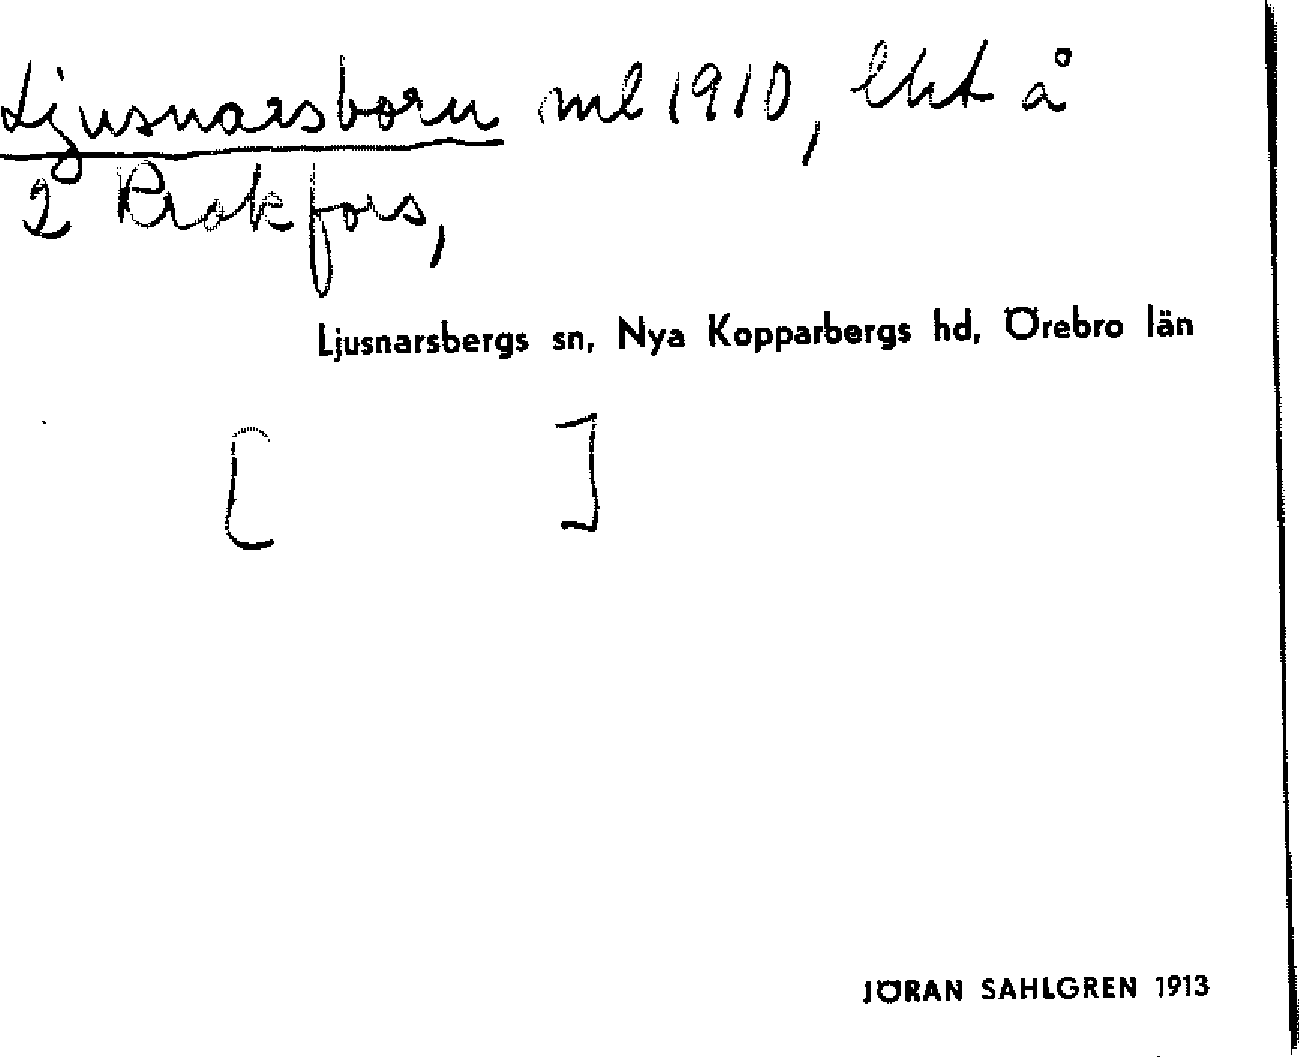 Ljusnarsborn ml 1910, lht å
2 Krokfors,
Ljusnarsbergs sn, Nya Kopparbergs hd, Örebro län
[ ]
JÖRAN SAHLGREN 1913